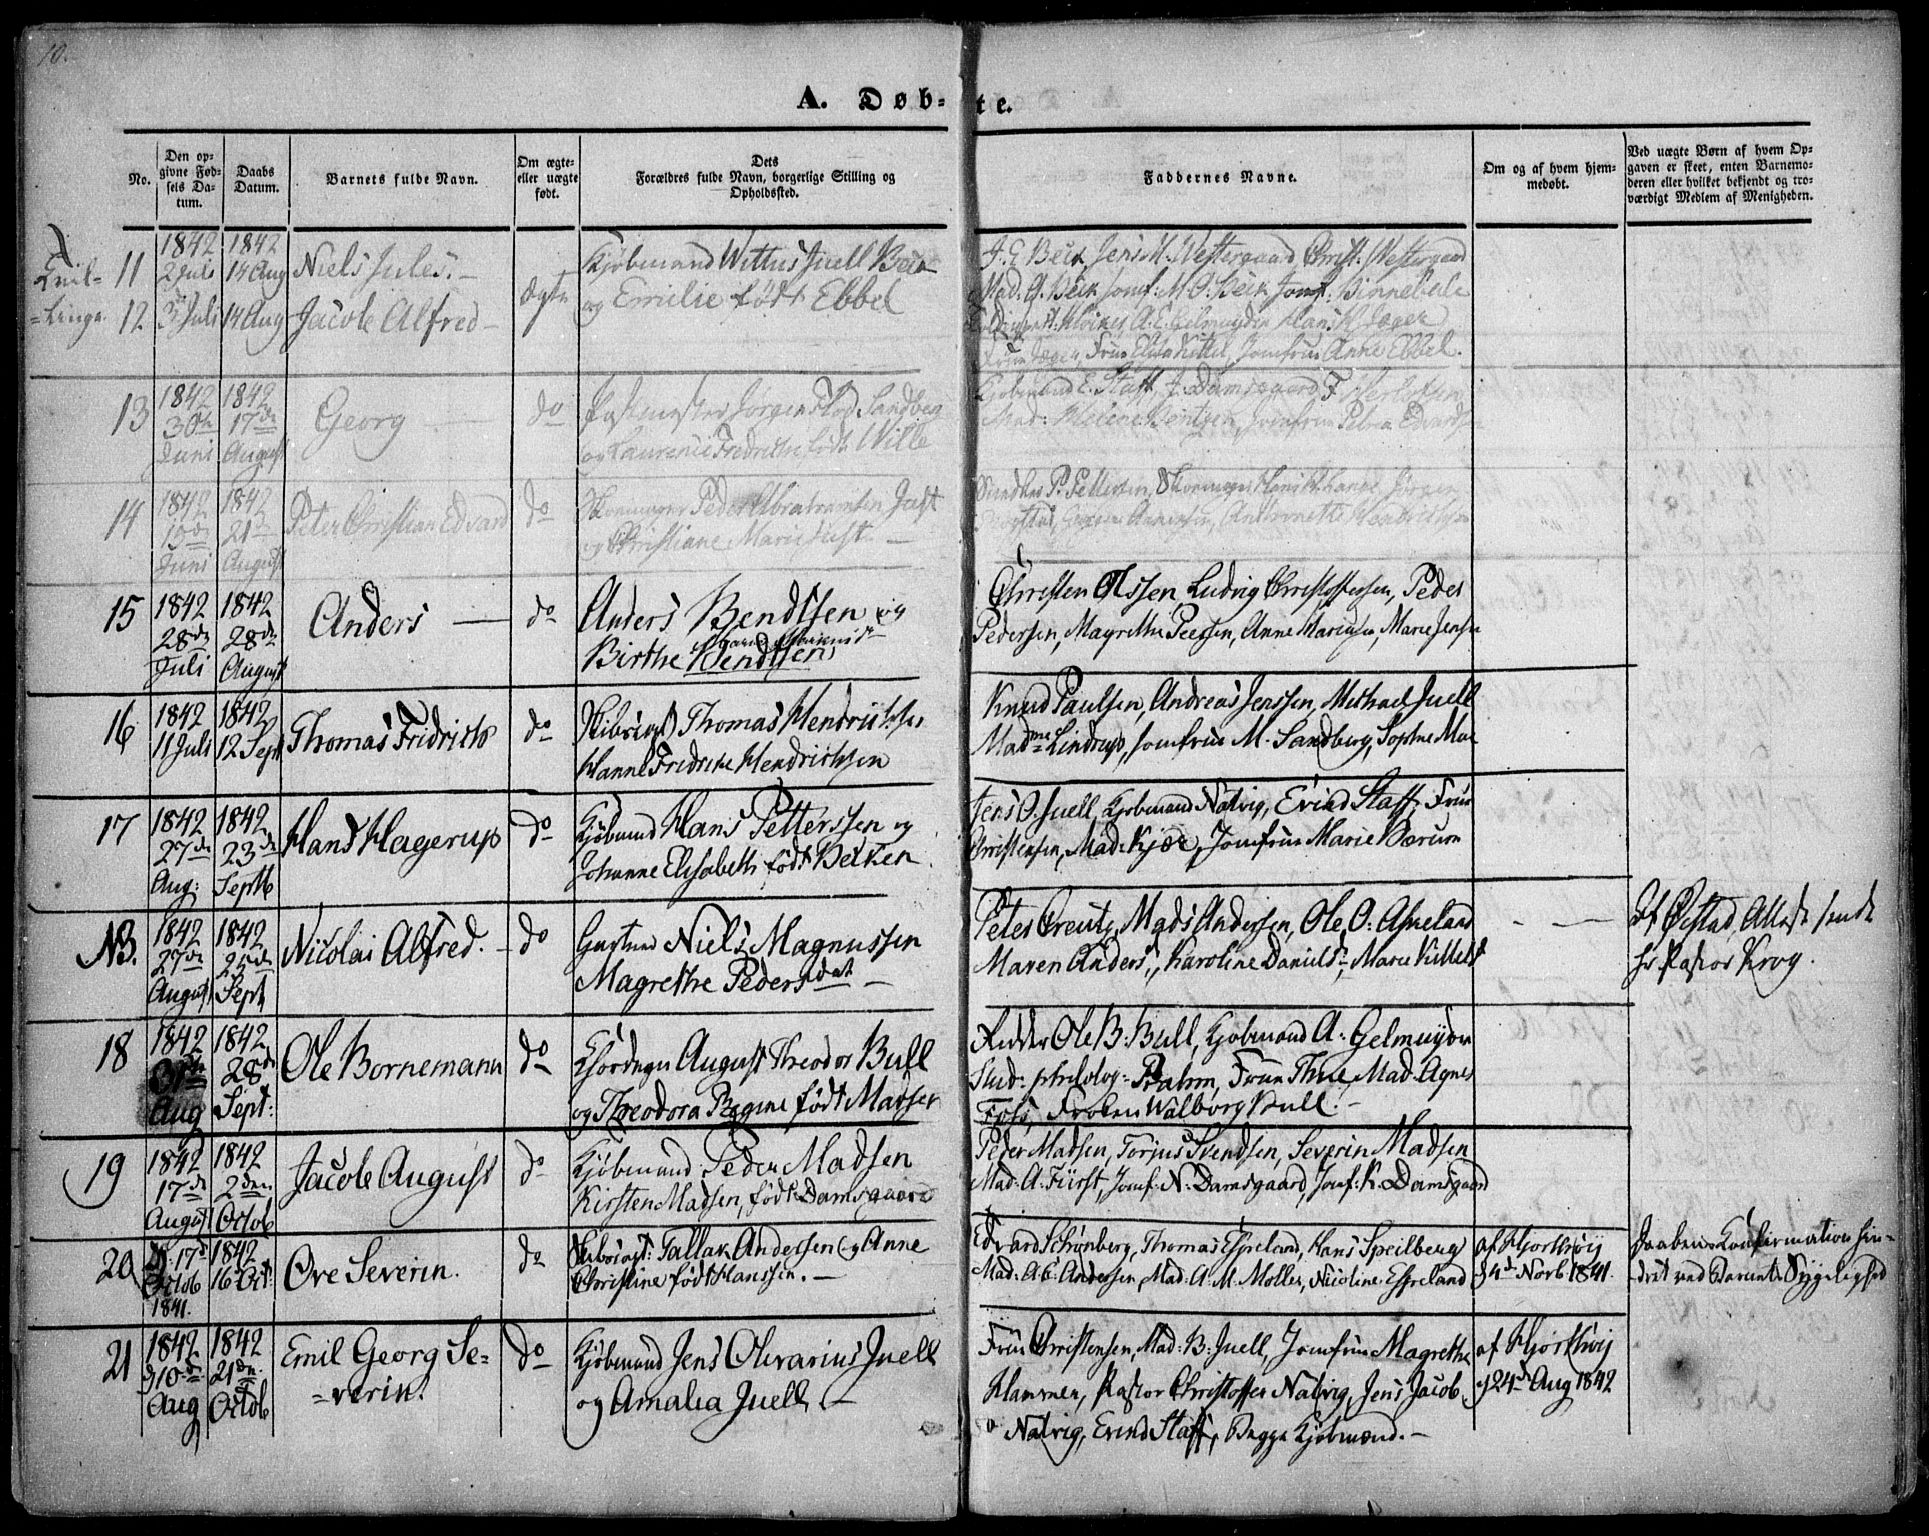 10.
A. Døb- te.
No.
Den op-
givne Fød-
sels Da-
tum.
Daabs
Datum.
Barnets fulde Navn.
Om ægte-
eller uægte
født.
Dets
Forældres fulde Navn, borgerlige Stilling og
Opholdssted.
Faddernes Navne.
Om og af hvem hjem-
medøbt.
Ved uægte Børn af hvem Op-
gaven er skeet, enten Barnemo-
deren eller hvilket bekjendt og tro-
værdigt Medlem af Menigheden.
Tvil-
-linge
11 1842 2 Juli 1842 14 Aug Niels Jules.
12 3 Juli 14 Aug Jacob Alfred
Ægte
Kjøbmand Wittus Juell Beck
og Emilie født Ebbel
J. E. Beck Jens M. Westergaard Christ. Westergaard
Mad. A. Beck Jomf. M. O. Beck Jomf.
A. E. Gelmuyden Hans H. Jæger
Frue Jæger, Frue Elisa Kittel, Jomfrue Anne Ebbel.
13 1842 30te Juni 1842 17de August Georg do
Postmester Jørgen Flod Sandberg
og Laurense Fredrikke født Wille
Kjøbmand E. Staff, J. Damsgaard, F.
Mad: Helene Bentzen, Jomfrue Petra Edvardsen
14 1842 Juni 1842 21de August Peter Christian Edvard do
Skomager Peder Abrahamsen Just
og Christiane Marie Just
P. Pettersen, Skomager Hans Jørgen
15 1842 28de Juli 1842 28de August Anders do
Anders Bendtsen og
Birthe Bendtsen
Christen Olssen Ludvig Christoffersen, Peder
Pedersen, Magrethe Peersen, Anne Mariusen, Marie Jensen
16 1842 11 Juli 1842 12 Sept Thomas Fridrich do
Skibscapt Thomas Hendrichsen
Hanne Fredrikke Hendrichsen
Knud Paulsen, Andreas Jenssen, Michael Juell
Madme Lindrup, Jomfrue M. Sandberg, Sophie
17 1842 27de Aug: 1842 23de Septb Hans Hagerup do
Kjøbmand Hans Petterssen og
Johanne Elisabeth født Bekken
Jens O. Juell, Kjøbmand Natvig, Evind Staff, Frue
Christensen, Mad: Kjær, Jomfrue Marie Bærum
NB. 1842 27de August 1842 25de Sept Nicolai Alfred. do
Gastmd Niels Magnussen
Magrethe Pedersdat
Peter Creutz, Mads Andersen, Ole O. Asneland
Maren Anders, Karoline Daniels, Marie
Af Øistad, Attest sendt
Hr Pastor Krog.
18 1842 31te Aug 1842 28de Sept: Ole Bornemann do
August Theodor Bull
og Theodora Regine født Madsen
Ridder Ole B. Bull, Kjøbmand A. Gelmuyden
Stud: philolog: Frue Thue Mad. Agnes
Foss, Frøken Walborg Bull.
19 1842 17de August 1842 2den Octob Jacob August do
Kjøbmand Peder Madsen
Kirsten Madsen, født Damsgaard
Peder Madsen, Torjus Svendsen, Severin Madsen
Mad: A. Fürst, Jomf: N. Damsgaard, Jomf: K. Damsgaard
20 17de Octob 1841. 1842 16 Oct. Ove Severin. do
Skibscapt: Tallak Andersen og Anne
Christine født Hanssen.
Edvard Schønberg, Thomas Espeland, Hans Speilberg
Mad: A. C. Andersen, Mad: A. M. Møller, Nicoline Espeland
af Hjorthøy
d 4de Novb 1841.
Daabens Konfirmation hin-
dret ved Barnets Sygelighed
21 1842 d 10de Aug 1842 21de Octob Emil Georg Se-
-verin.
do
Kjøbmand Jens Olavarius Juell
og Amalia Juell
Frue Christensen, Mad: B. Juell, Jomfrue Magrethe
Hammer, Pastor Christoffer Natvig, Jens Jacob
Natvig, Evind Staff, Bagge Kjøbmænd.
af Hjorthøy
d 24de Aug 1842